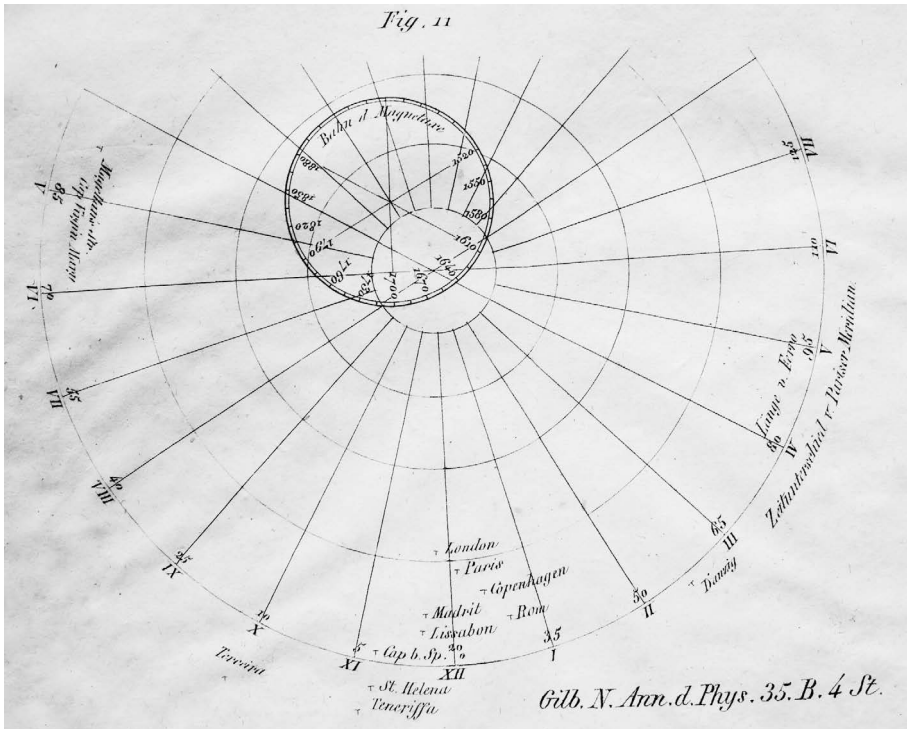 Fig. 11
Bahn d Magnetaxe
1520
1550
1580
1610
1640
1670
1700
1730
1760
1790
1820
1850
1880
Magellans-Str.
Cap Virgin. Mary
V
85
VI
70
VII
55
VIII
40
IX
25
X
10
XI
5
XII
20
I
35
II
50
III
65
IV
80
V
95
VI
110
VII
125
Lange v. Ferro
Zeitunterschied v Pariser Meridian.
London
Paris
Copenhagen
Madrit
Rom
Lissabon
Cap b. Sp.
St. Helena
Teneriffa
Terceira
Danzig
Gilb. N. Ann. d. Phys. 35. B. 4 St.